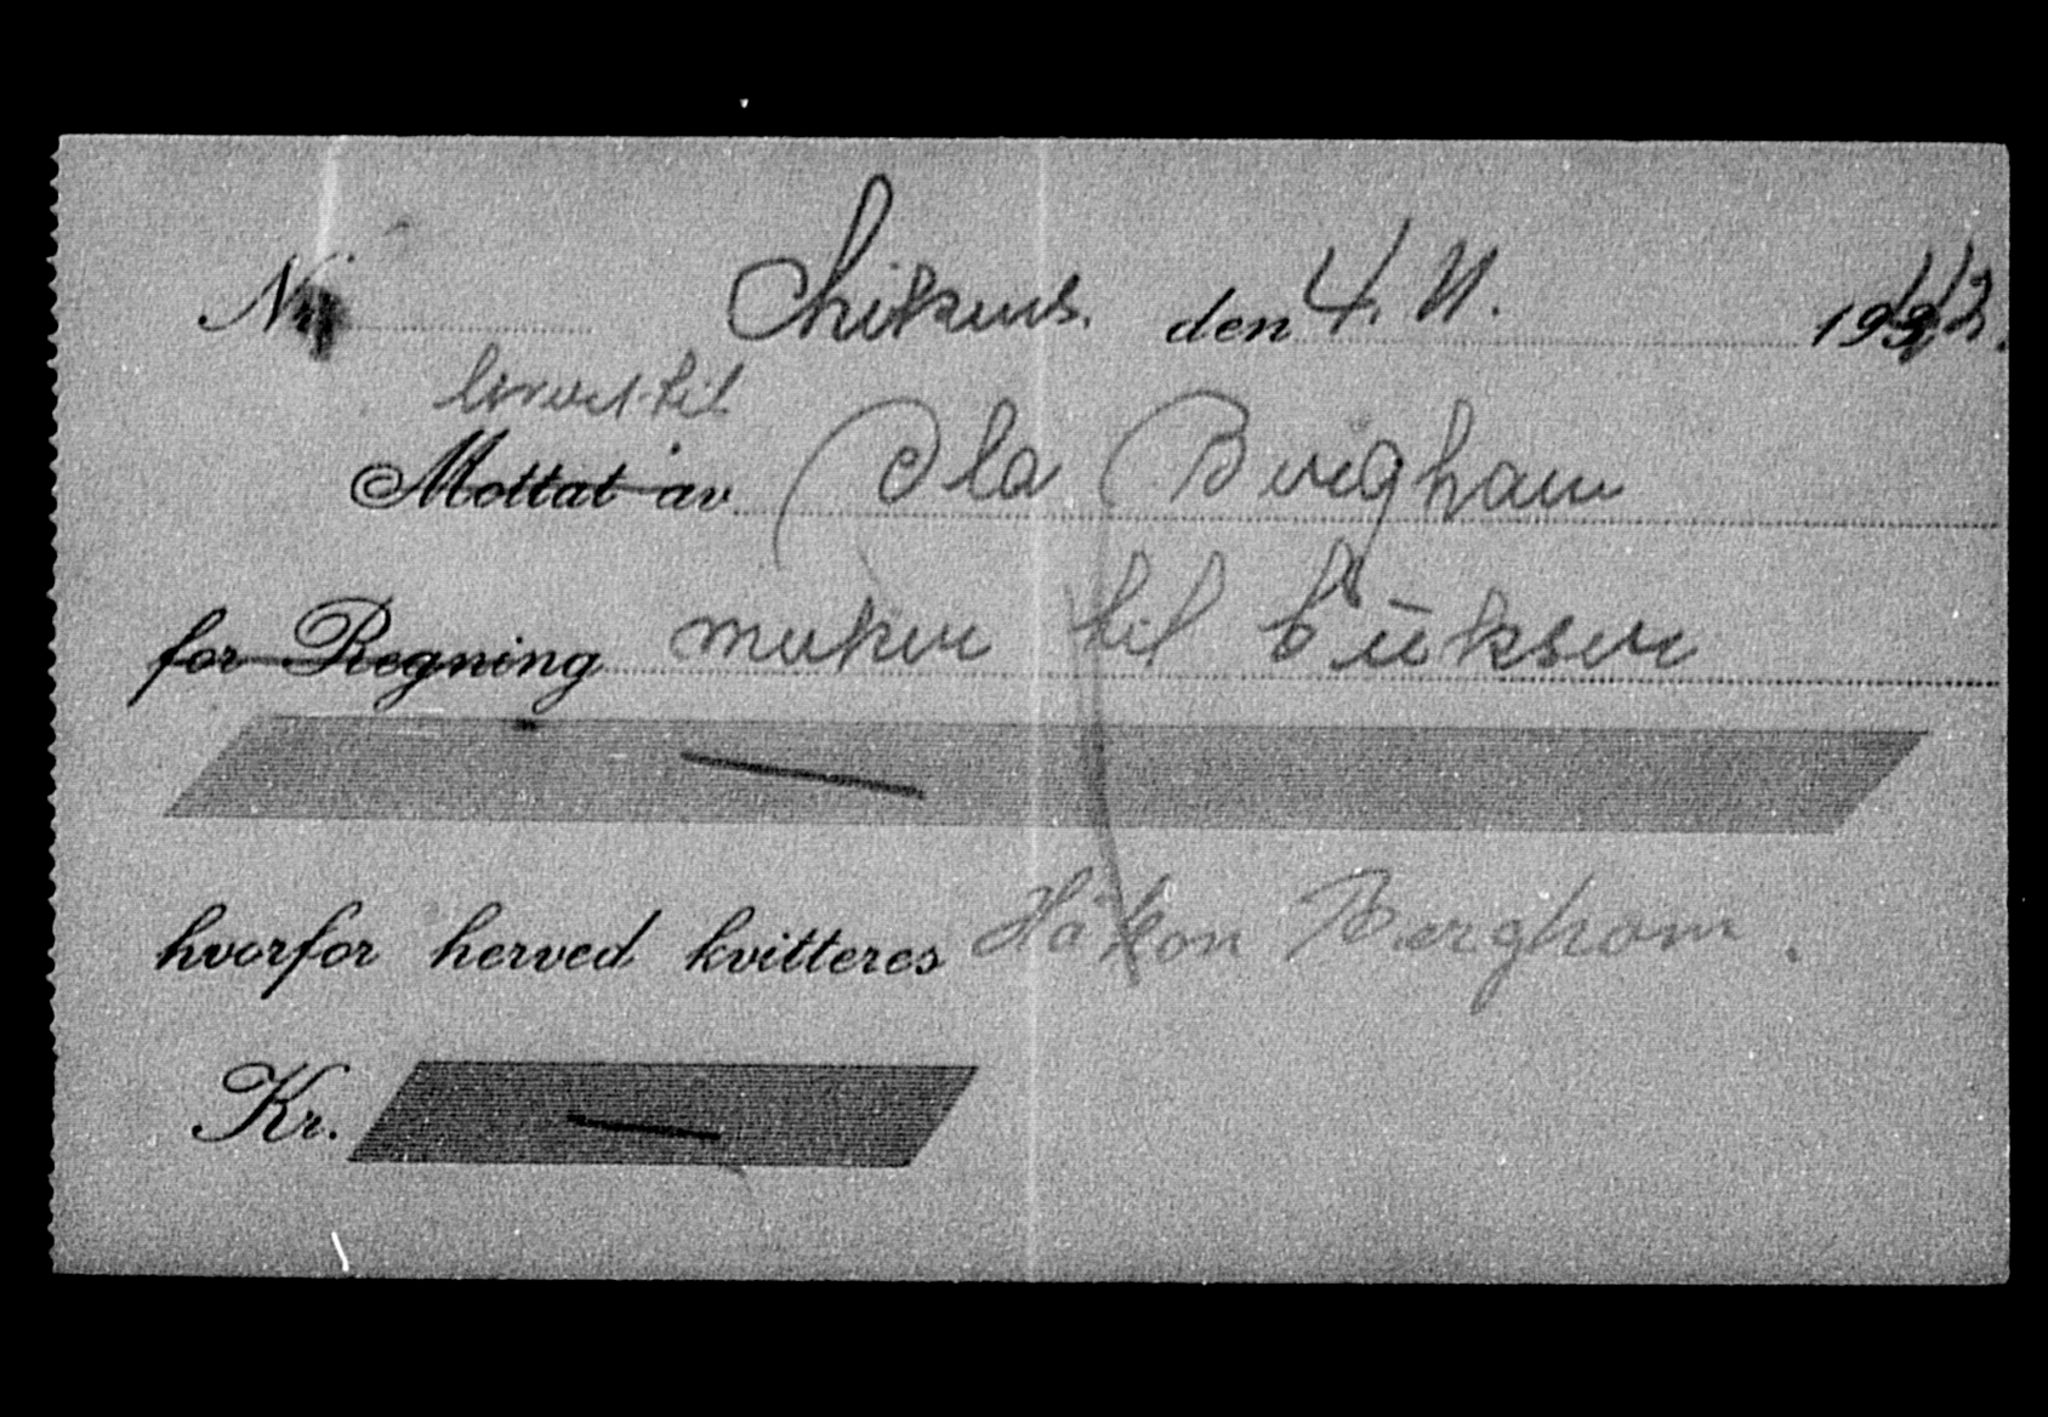 Nr. den 4. 11. 1942.
levert til
Mottat av Ola Bergham
for Regning merker til bukser
hvorfor herved kvitteres Håkon Bergham.
Kr.